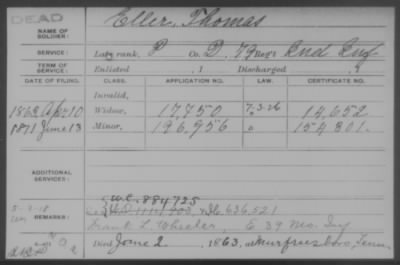 DEAD
NAME OF SOLDIER: Eller, Thomas
SERVICE: Late rank, P Co. D, 79 Reg't Ind Inf
TERM OF SERVICE: Enlisted , 1 Discharged , 1
DATE OF FILING. CLASS. APPLICATION NO. LAW. CERTIFICATE NO.
Invalid,
1863 Apr 10 Widow, 17,750 7.3.26 14,652
1871 June 13 Minor, 196,956 " 154,801
ADDITIONAL SERVICES:
W.C. 884725
REMARKS: 636,521
Frank L. Wheeler, E 39 Mo. Inf
Died June 2, 1863, at Murfreesboro, Tenn.